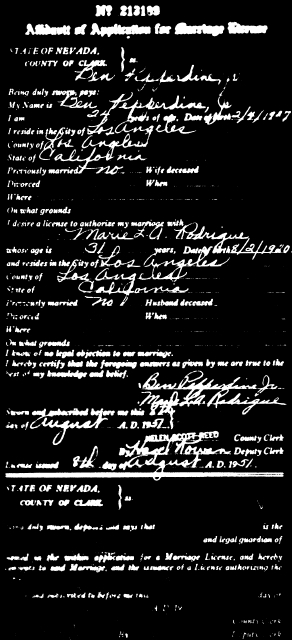 No 213199
Affidavit of Application for Marriage License
STATE OF NEVADA,
COUNTY OF CLARK. } ss.
Ben Pepperdine, Jr
Being duly sworn, says:
My Name is Ben Pepperdine, Jr
I am 24 years of age. Date of birth 3/2/1927
I reside in the City of Los Angeles
County of Los Angeles
State of California
Previously married No. Wife deceased
Divorced When
Where
On what grounds
I desire a license to authorize my marriage with
Marie L. A. Rodrigue,
whose age is 31 years, Date of birth 8/2/1920
and resides in the City of Los Angeles
County of Los Angeles
State of California
Previously married No Husband deceased
Divorced When
Where
On what grounds
I know of no legal objection to our marriage.
I hereby certify that the foregoing answers as given by me are true to the
best of my knowledge and belief.
Ben Pepperdine Jr.
Marie L. A. Rodrigue
Sworn and subscribed before me this 8th
day of August A. D. 1951
HELEN SCOTT REED County Clerk
By Deputy Clerk
License issued 8th day of August A. D. 1951.
STATE OF NEVADA,
COUNTY OF CLARK. } ss.
being duly sworn, deposes and says that is the
and legal guardian of
named in the within application for a Marriage License, and hereby
consents to said Marriage, and the issuance of a License authorizing the
and subscribed to before me this day of
A. D. 19
County Clerk
By Deputy Clerk